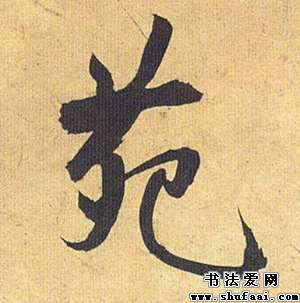 苑
书法爱网
www.shufaai.com